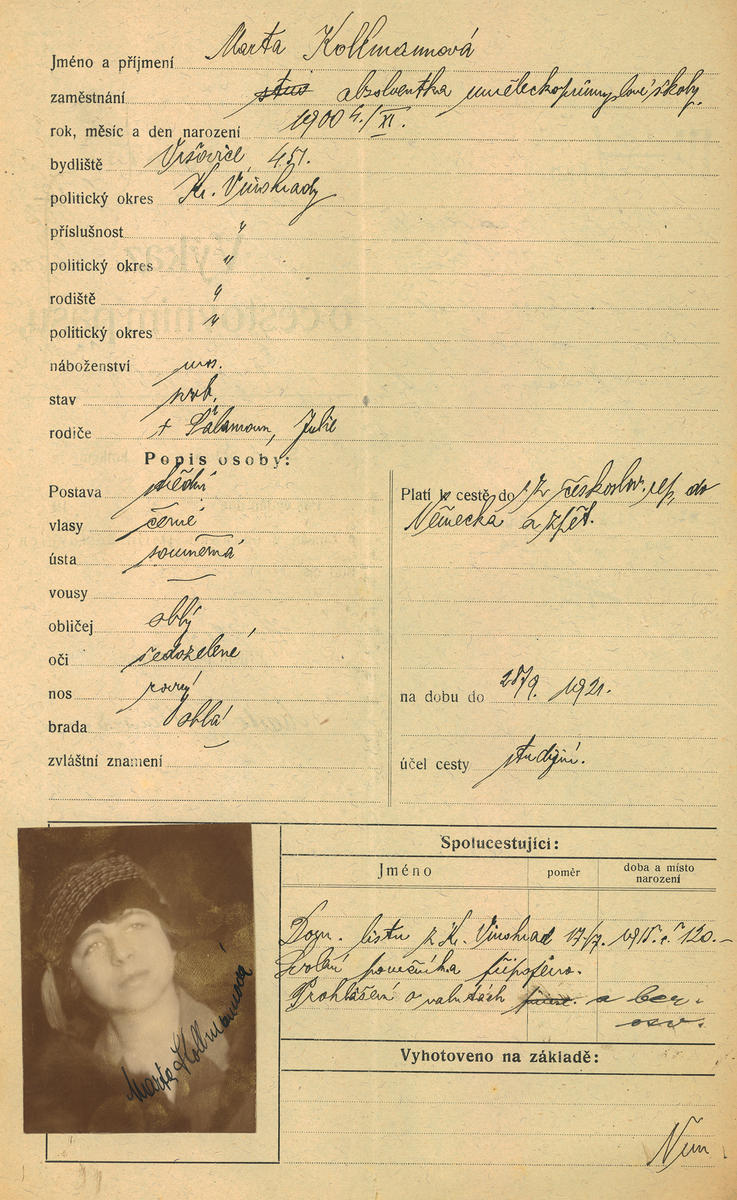 Jméno a příjmení Marta Kollmannová
zaměstnání stus absolventka uměleckoprůmyslové školy.
rok, měsíc a den narození 1900 4./XI.
bydliště Vršovice, 451.
politický okres Kr. Vinohrady
příslušnost "
politický okres "
rodiště "
politický okres "
náboženství mos.
stav svob.
rodiče + Šalamoun, Julie
Popis osoby:
Postava střední
vlasy černé
ústa souměrná
vousy —
obličej oblý
oči šedozelené
nos rovný
brada oblá
zvláštní znamení —
Platí k cestě do z českoslov. rep. do
Německa a zpět.
na dobu do 28/9. 1921.
účel cesty studijní.
Marta Kollmannová
Spolucestující:
Jméno poměr doba a místo
narození
Dom. listu z K. Vinohrad 17/7. 1915. č. 120.–
Svolení poručníka připojeno.
Prohlášení o valutách a ber.
osv.
Vyhotoveno na základě: